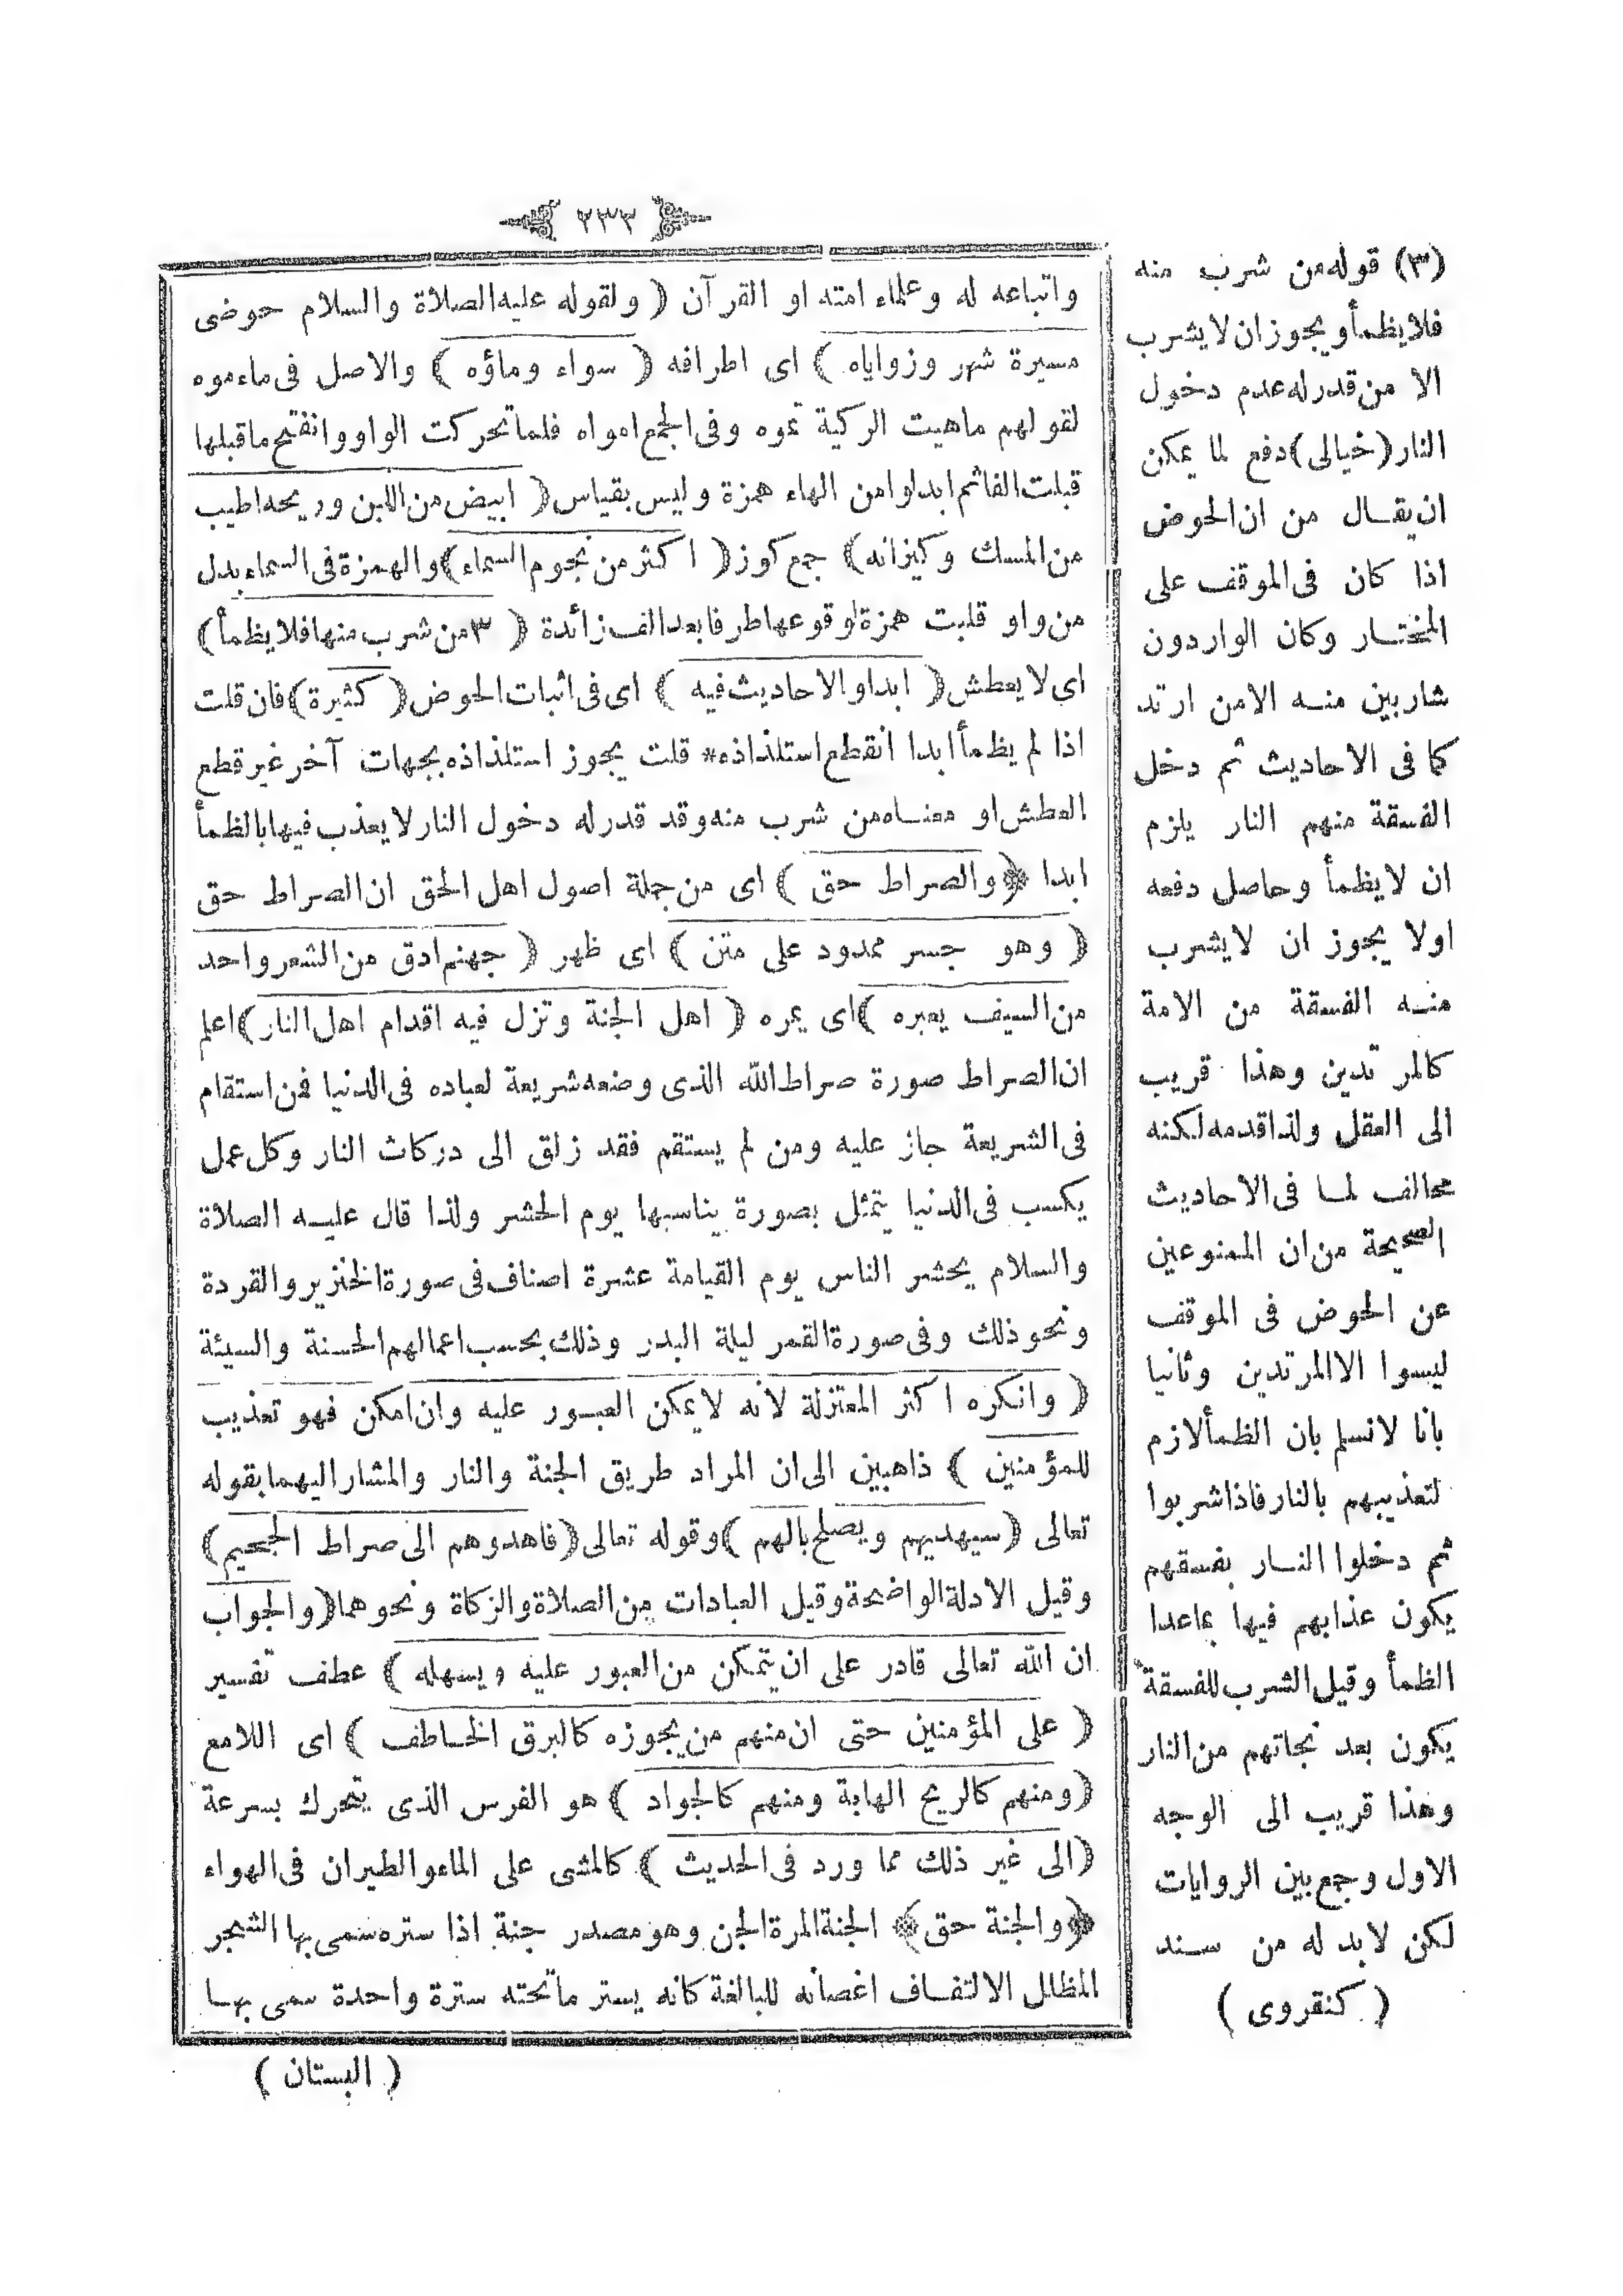 ٢٣٣
واتباعه له وعلماء امته او القرآن ( ولقوله عليه الصلاة والسلام حوضى
مسيرة شهر وزواياه ) اى اطرافه ( سواء وماؤه ) والاصل فى ماء موه
لقولهم ماهيت الركية تموه وفى الجمع امواه فلما تحركت الواو وانفتح ماقبلها
قبلت الفا ثم ابدلوا من الهاء همزة وليس بقياس ( ابيض من اللبن وريحه اطيب
من المسك وكيزانه ) جمع كوز ( اكثر من نجوم السماء ) والهمزة فى السماء بدل
من واو قلبت همزة لوقوعها طرفا بعد الف زائدة ( ٣ من شرب منها فلا يظمأ )
اى لا يعطش ( ابدا والاحاديث فيه ) اى فى اثبات الحوض ( كثيرة ) فان قلت
اذا لم يظمأ ابدا انقطع استلذاذه * قلت يجوز استلذاذه بجهات آخر غير قطع
العطش او معناه من شرب منه وقد قدر له دخول النار لا يعذب فيها بالظمأ
ابدا ﴿ والصراط حق ) اى من جملة اصول اهل الحق ان الصراط حق
( وهو جسر ممدود على متن ) اى ظهر ( جهنم ادق من الشعر واحد
من السيف يعبره ) اى يمره ( اهل الجنة وتزل فيه اقدام اهل النار ) اعلم
ان الصراط صورة صراط الله الذى وضعه شريعة لعباده فى الدنيا فمن استقام
فى الشريعة جاز عليه ومن لم يستقم فقد زلق الى دركات النار وكل عمل
يكسب فى الدنيا يتمثل بصورة يناسبها يوم الحشر ولذا قال عليه الصلاة
والسلام يحشر الناس يوم القيامة عشرة اصناف فى صورة الخنزير والقردة
ونحو ذلك وفى صورة القمر ليلة البدر وذلك بحسب اعمالهم الحسنة والسيئة
( وانكره اكثر المعتزلة لانه لا يمكن العبور عليه وان امكن فهو تعذيب
للمؤمنين ) ذاهبين الى ان المراد طريق الجنة والنار والمشار اليهما بقوله
تعالى ( سيهديهم ويصلح بالهم ) وقوله تعالى ( فاهدوهم الى صراط الجحيم )
وقيل الادلة الواضحة وقيل العبادات من الصلاة والزكاة ونحوهما ( والجواب
ان الله تعالى قادر على ان يتمكن من العبور عليه ويسهله ) عطف تفسير
( على المؤمنين حتى ان منهم من يجوزه كالبرق الخاطف ) اى اللامع
( ومنهم كالريح الهابة ومنهم كالجواد ) هو الفرس الذى يتحرك بسرعة
( الى غير ذلك مما ورد فى الحديث ) كالمشى على الماء والطيران فى الهواء
﴿ والجنة حق ﴾ الجنة المرة الجن وهو مصدر جنة اذا ستره سمى بها الشجر
المظلل الالتفاف اغصانه للبالغة كانه يستر ماتحته سترة واحدة سمى بها
( البستان )
(٣) قوله من شرب منه
فلا يظمأ ويجوز ان لا يشرب
الا من قدر له عدم دخول
النار ( خيالى ) دفع لما يمكن
ان يقال من ان الحوض
اذا كان فى الموقف على
المختار وكان الواردون
شاربين منه الا من ارتد
كما فى الاحاديث ثم دخل
الفسقة منهم النار يلزم
ان لا يظمأ وحاصل دفعه
اولا يجوز ان لا يشرب
منه الفسقة من الامة
كالمرتدين وهذا قريب
الى العقل ولذا قدمه لكنه
مخالف لما فى الاحاديث
الصحيحة من ان الممنوعين
عن الحوض فى الموقف
ليسوا الا المرتدين وثانيا
بانا لا نسلم بان الظمأ لازم
لتعذيبهم بالنار فاذا شربوا
ثم دخلوا النار بفسقهم
يكون عذابهم فيها بما عدا
الظمأ وقيل الشرب للفسقة
يكون بعد نجاتهم من النار
وهذا قريب الى الوجه
الاول وجمع بين الروايات
لكن لا بد له من سند
( كنقروى )